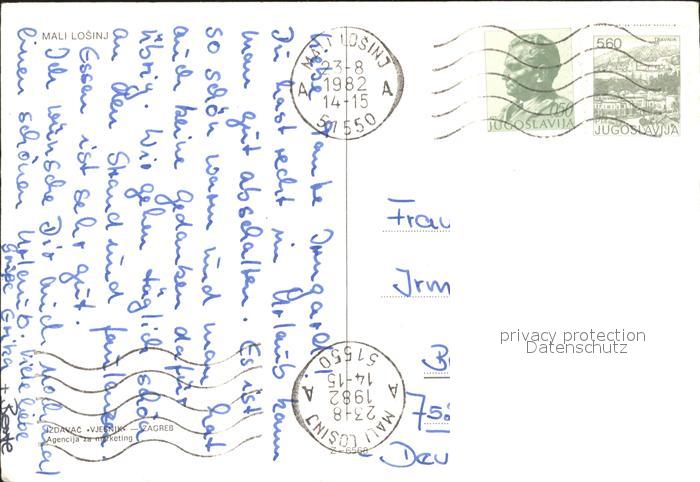 MALI LOŠINJ
Liebe Tante Irmgard!
Du hast recht im Urlaub kann
man gut abschalten. Es ist
so schön warm und man hat
auch keine Gedanken dafür
übrig. Wir gehen täglich schön
an den Strand und faulenzen.
Essen ist sehr gut.
Ich wünsche Dir auch noch mal
einen schönen Urlaub. Viele liebe
Grüße Erika +
IZDAVAČ «VJESNIK» — ZAGREB
Agencija za marketing
Z-6568
MALI LOŠINJ
23-8
1982
14-15
A A
51550
0.50
JUGOSLAVIJA
5.60
TRAVNIK
JUGOSLAVIJA
Frau
Irm
B
75
Deu
privacy protection
Datenschutz
MALI LOŠINJ
23-8
1982
14-15
A A
51550